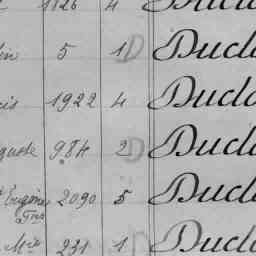 1826 4 Duclo
in 5 1 D Duclo
cis 1922 4 Duclo
guste 984 2 D Duclo
Eugène 2090 5 Duclo
Fois
Mie 231 1 D Duclo